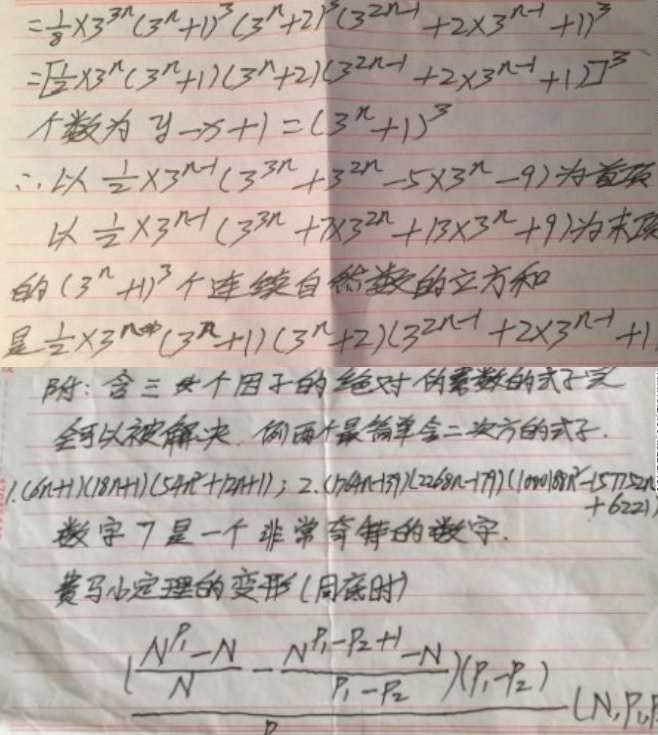 =1/8×3^{3n}(3^n+1)^3(3^n+2)^3(3^{2n-1}+2×3^{n-1}+1)^3
=[1/2×3^n(3^n+1)(3^n+2)(3^{2n-1}+2×3^{n-1}+1)]^3
个数为 y-x+1=(3^n+1)^3
∴以 1/2×3^{n-1}(3^{3n}+3^{2n}-5×3^n-9)为首项
以 1/2×3^{n-1}(3^{3n}+7×3^{2n}+13×3^n+9)为末项
的(3^n+1)^3个连续自然数的立方和
是1/2×3^n(3^n+1)(3^n+2)(3^{2n-1}+2×3^{n-1}+1
附:含三个因子的绝对伪素数的式子完
全可以被解决.例两个最简单含二次方的式子.
1.(6n+1)(18n+1)(54n²+12n+1);2.
+6221)
数字7是一个非常奇特的数字.
费马小定理的变形(同底时)
((N^{P₁}-N)/N - (N^{P₁-P₂+1}-N)/(P₁-P₂))(P₁-P₂)
(N,P₁,P